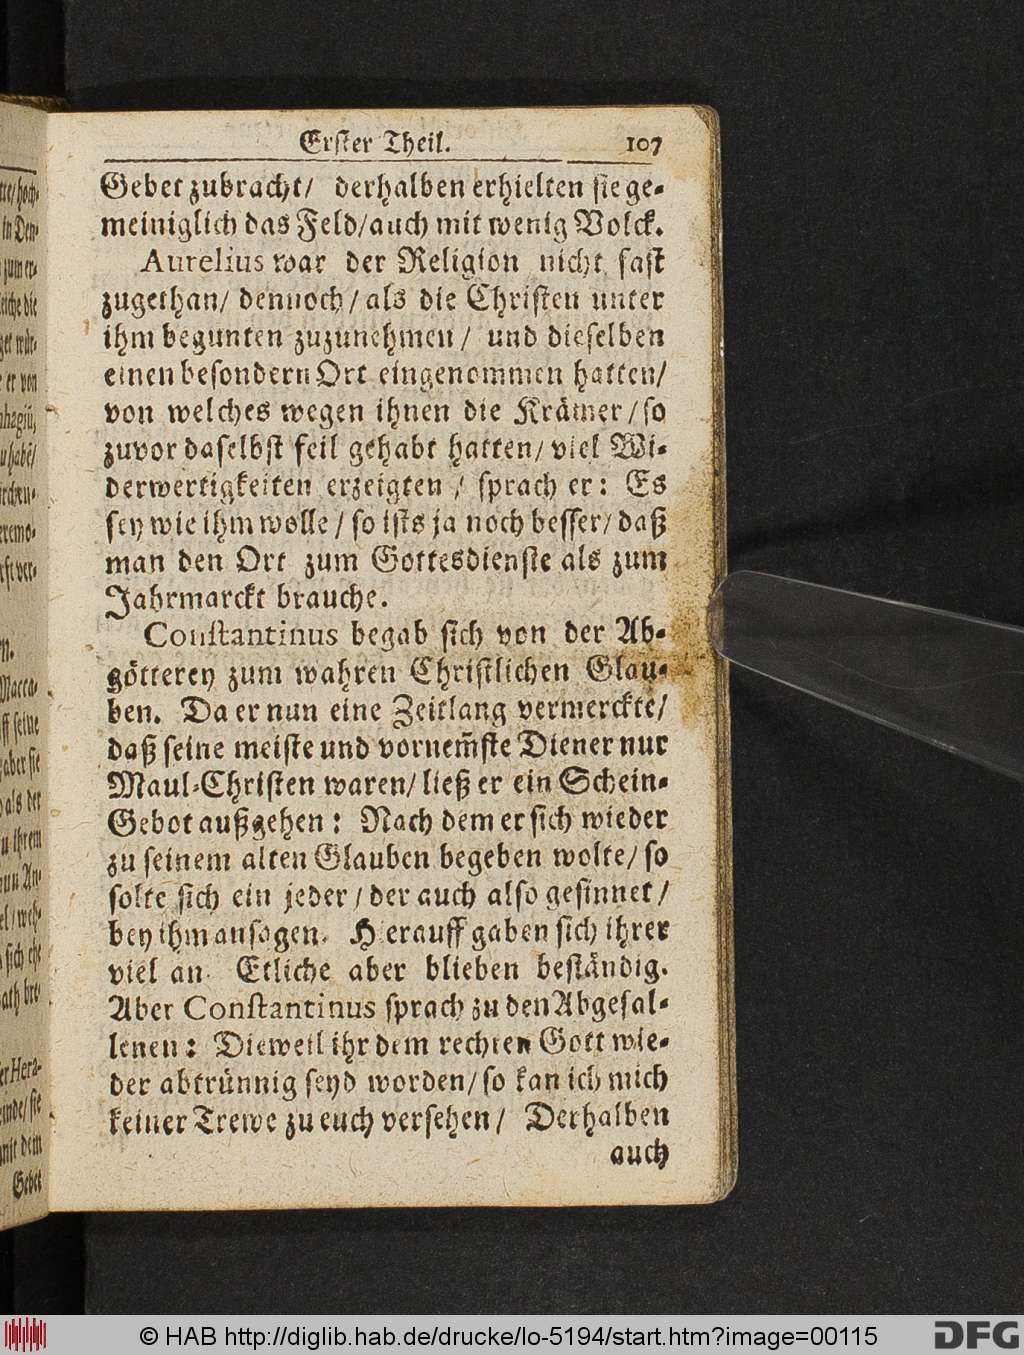 Erster Theil. 107
Gebet zubracht/ derhalben erhielten sie ge-
meiniglich das Feld/ auch mit wenig Volck.
Aurelius war der Religion nicht fast
zugethan/ dennoch/ als die Christen unter
ihm begunten zuzunehmen/ und dieselben
einen besondern Ort eingenommen hatten/
von welches wegen ihnen die Krämer/ so
zuvor daselbst feil gehabt hatten/ viel Wi-
derwertigkeiten erzeigten/ sprach er: Es
sey wie ihm wolle/ so ists ja noch besser/ daß
man den Ort zum Gottesdienste als zum
Jahrmarckt brauche.
Constantinus begab sich von der Ab-
götterey zum wahren Christlichen Glau-
ben. Da er nun eine Zeitlang vermerckte/
daß seine meiste und vornem̃ste Diener nur
Maul-Christen waren/ ließ er ein Schein-
Gebot außgehen: Nach dem er sich wieder
zu seinem alten Glauben begeben wolte/ so
solte sich ein jeder/ der auch also gesinnet/
bey ihm ansagen. Hierauff gaben sich ihrer
viel an. Etliche aber blieben beständig.
Aber Constantinus sprach zu den Abgefal-
lenen: Dieweil ihr dem rechten Gott wie-
der abtrünnig seyd worden/ so kan ich mich
keiner Trewe zu euch versehen/ Derhalben
auch
© HAB http://diglib.hab.de/drucke/lo-5194/start.htm?image=00115
DFG